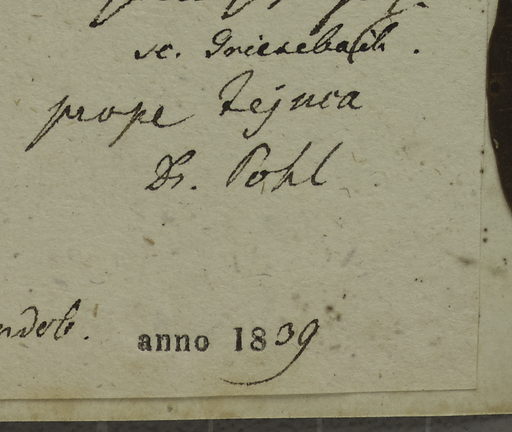 sc. Griesebach.
prope Tejuca
Dr. Pohl
anno 1839